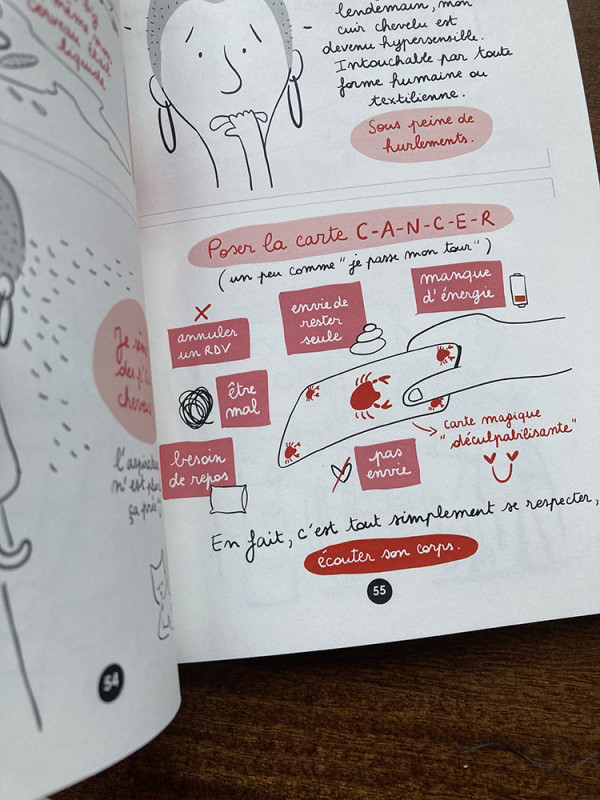 même mon
cerveau était
liquide.
Je sème
cheveux
l'aspirateur
n'est plus
ça près
54
lendemain, mon
cuir chevelu est
devenu hypersensible.
Intouchable par toute
forme humaine ou
textilienne.
Sous peine de
hurlements.
Poser la carte C-A-N-C-E-R
(un peu comme "je passe mon tour")
annuler
un RDV
envie de
rester
seule
manque
d'énergie
être
mal
carte magique
"déculpabilisante"
besoin
de repos
pas
envie
En fait, c'est tout simplement se respecter,
écouter son corps.
55